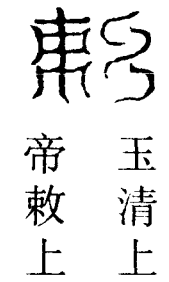 玉清上
帝敕上